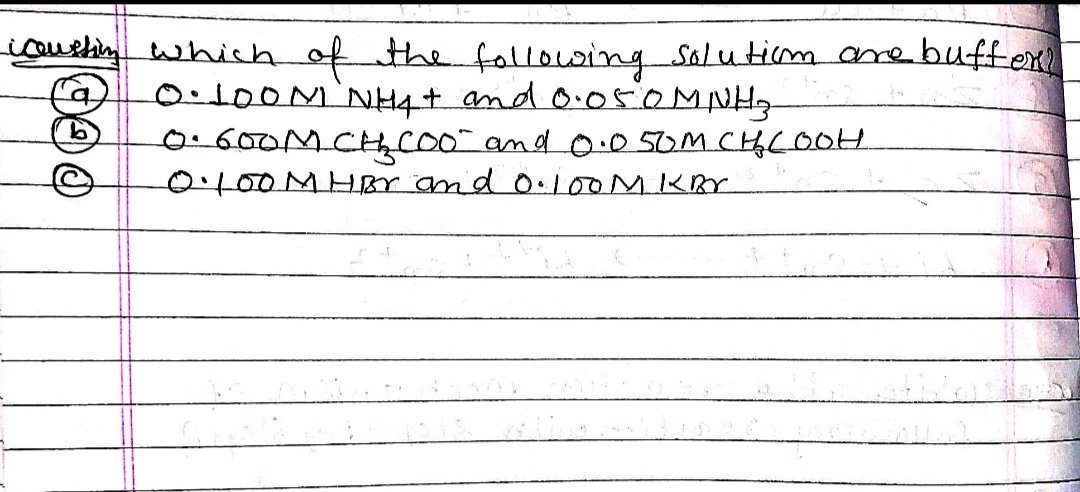 which of the following solution are buffer?
(a) 0.100M NH4+ and 0.050M NH3
(b) 0.600M CH3COO- and 0.050M CH3COOH
(c) 0.100M HBr and 0.100M KBr